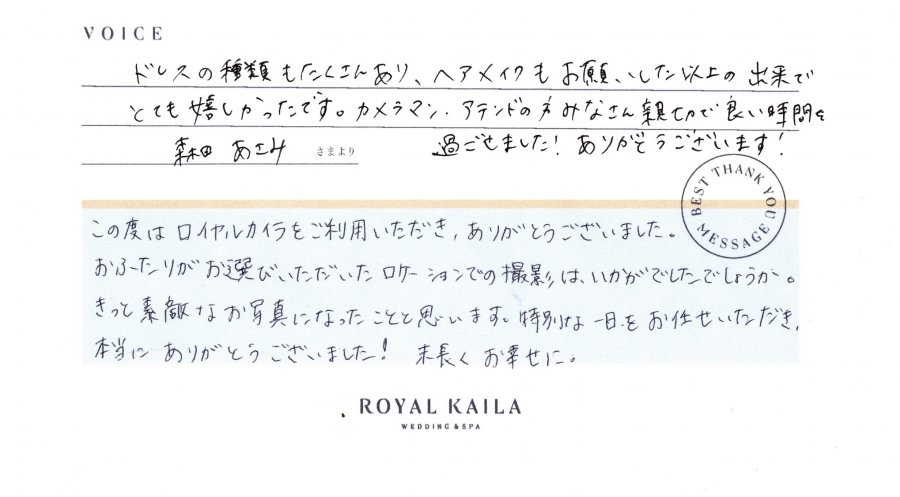 VOICE
ドレスの種類もたくさんあり、ヘアメイクもお願いした以上の出来で
とても嬉しかったです。カメラマン、アテンドの方みなさん親切で良い時間を
森田 あさみ さまより 過ごせました！ ありがとうございます！
BEST THANK YOU MESSAGE
この度はロイヤルカイラをご利用いただき、ありがとうございました。
おふたりがお選びいただいたロケーションでの撮影は、いかがでしたでしょうか。
きっと素敵なお写真になったことと思います。特別な一日をお任せいただき、
本当にありがとうございました！ 末長くお幸せに。
ROYAL KAILA
WEDDING & SPA